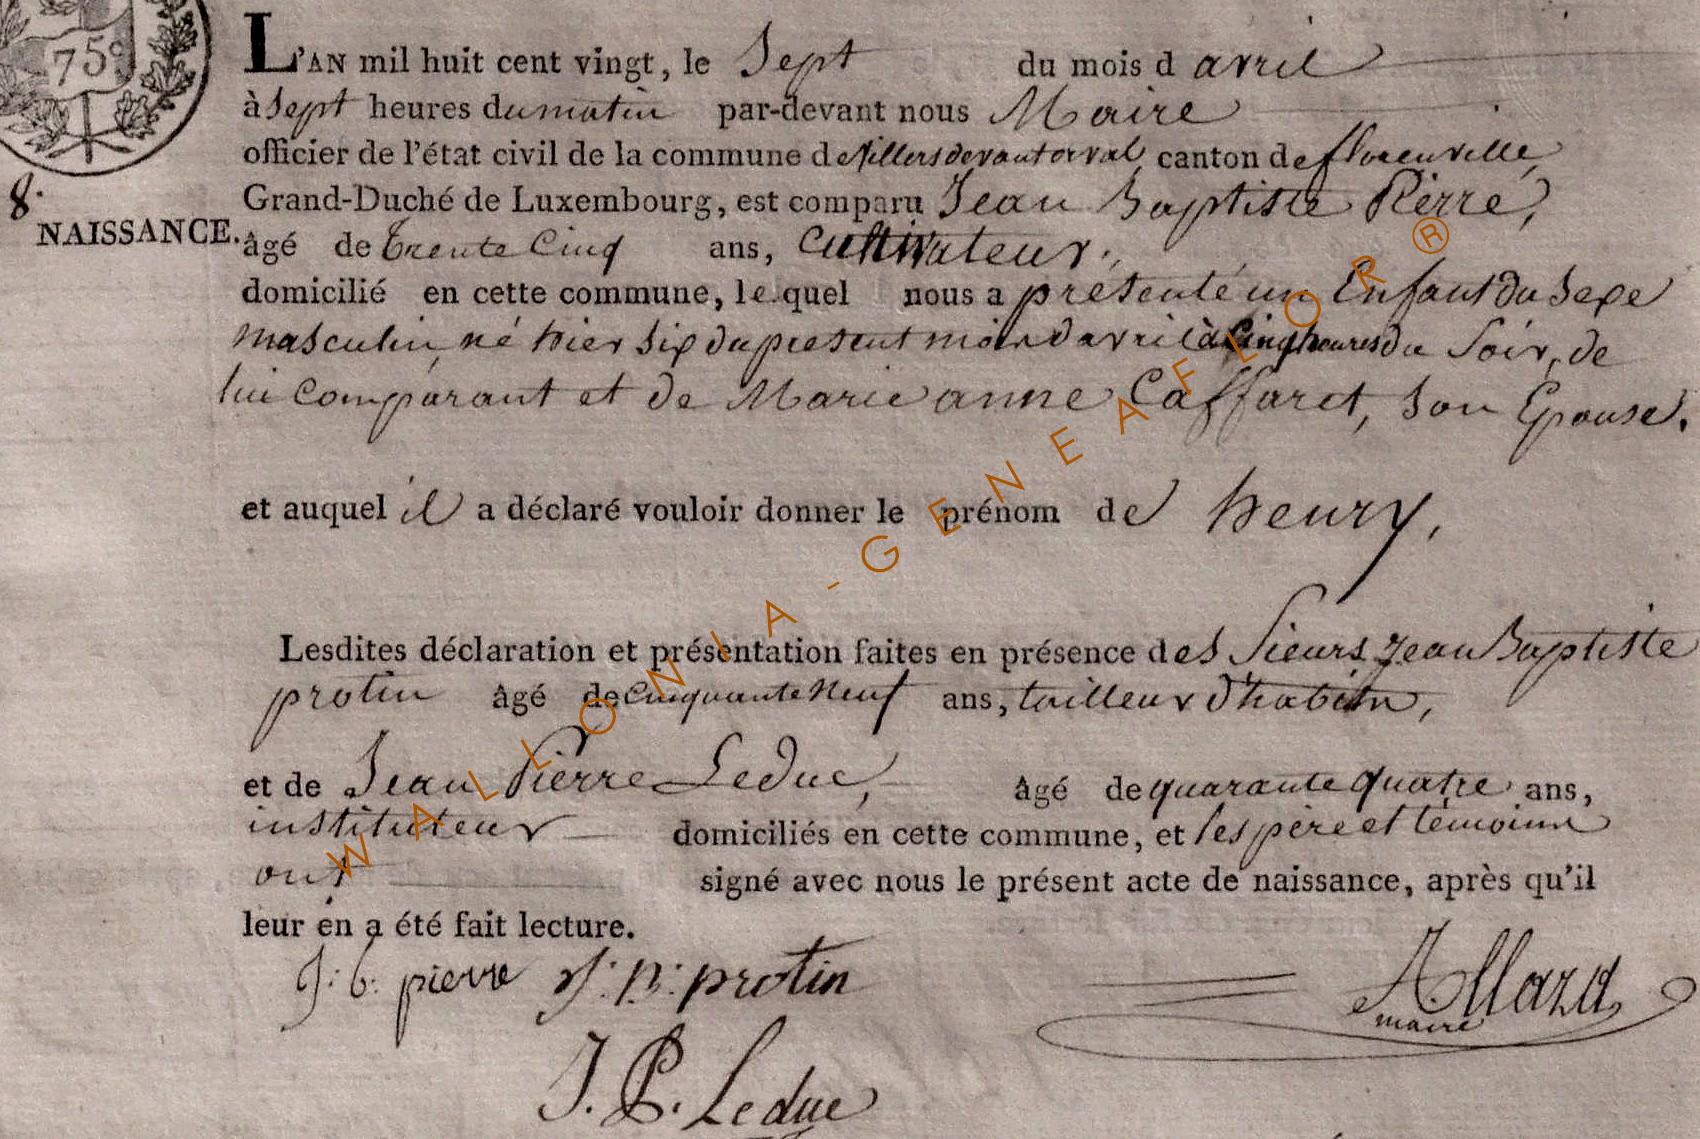 75c
L'AN mil huit cent vingt, le Sept du mois d avril
à sept heures du matin par-devant nous Maire
officier de l'état civil de la commune de Villers devant orval, canton de florenville,
8.
Grand-Duché de Luxembourg, est comparu Jean Baptiste Pierre,
NAISSANCE.
âgé de trente Cinq ans, Cultivateur,
domicilié en cette commune, lequel nous a présenté un Enfant du Sexe
masculin, né hier Six du present mois d avril à Cinq heures du Soir, de
lui Comparant et de Marie anne Caffaret, Son Epouse.
et auquel il a déclaré vouloir donner le prénom de henry,
Lesdites déclaration et présentation faites en présence des Sieurs Jean Baptiste
protin âgé de Cinquante Neuf ans, tailleur d'habits,
et de Jean Pierre Leduc, âgé de quarante quatre ans,
instituteur domiciliés en cette commune, et les père et témoins
ont signé avec nous le présent acte de naissance, après qu'il
leur en a été fait lecture.
J: b: pierre J: B: protin
Allard
maire
J. P. Leduc
WALLONIA-GENEAFLOR®